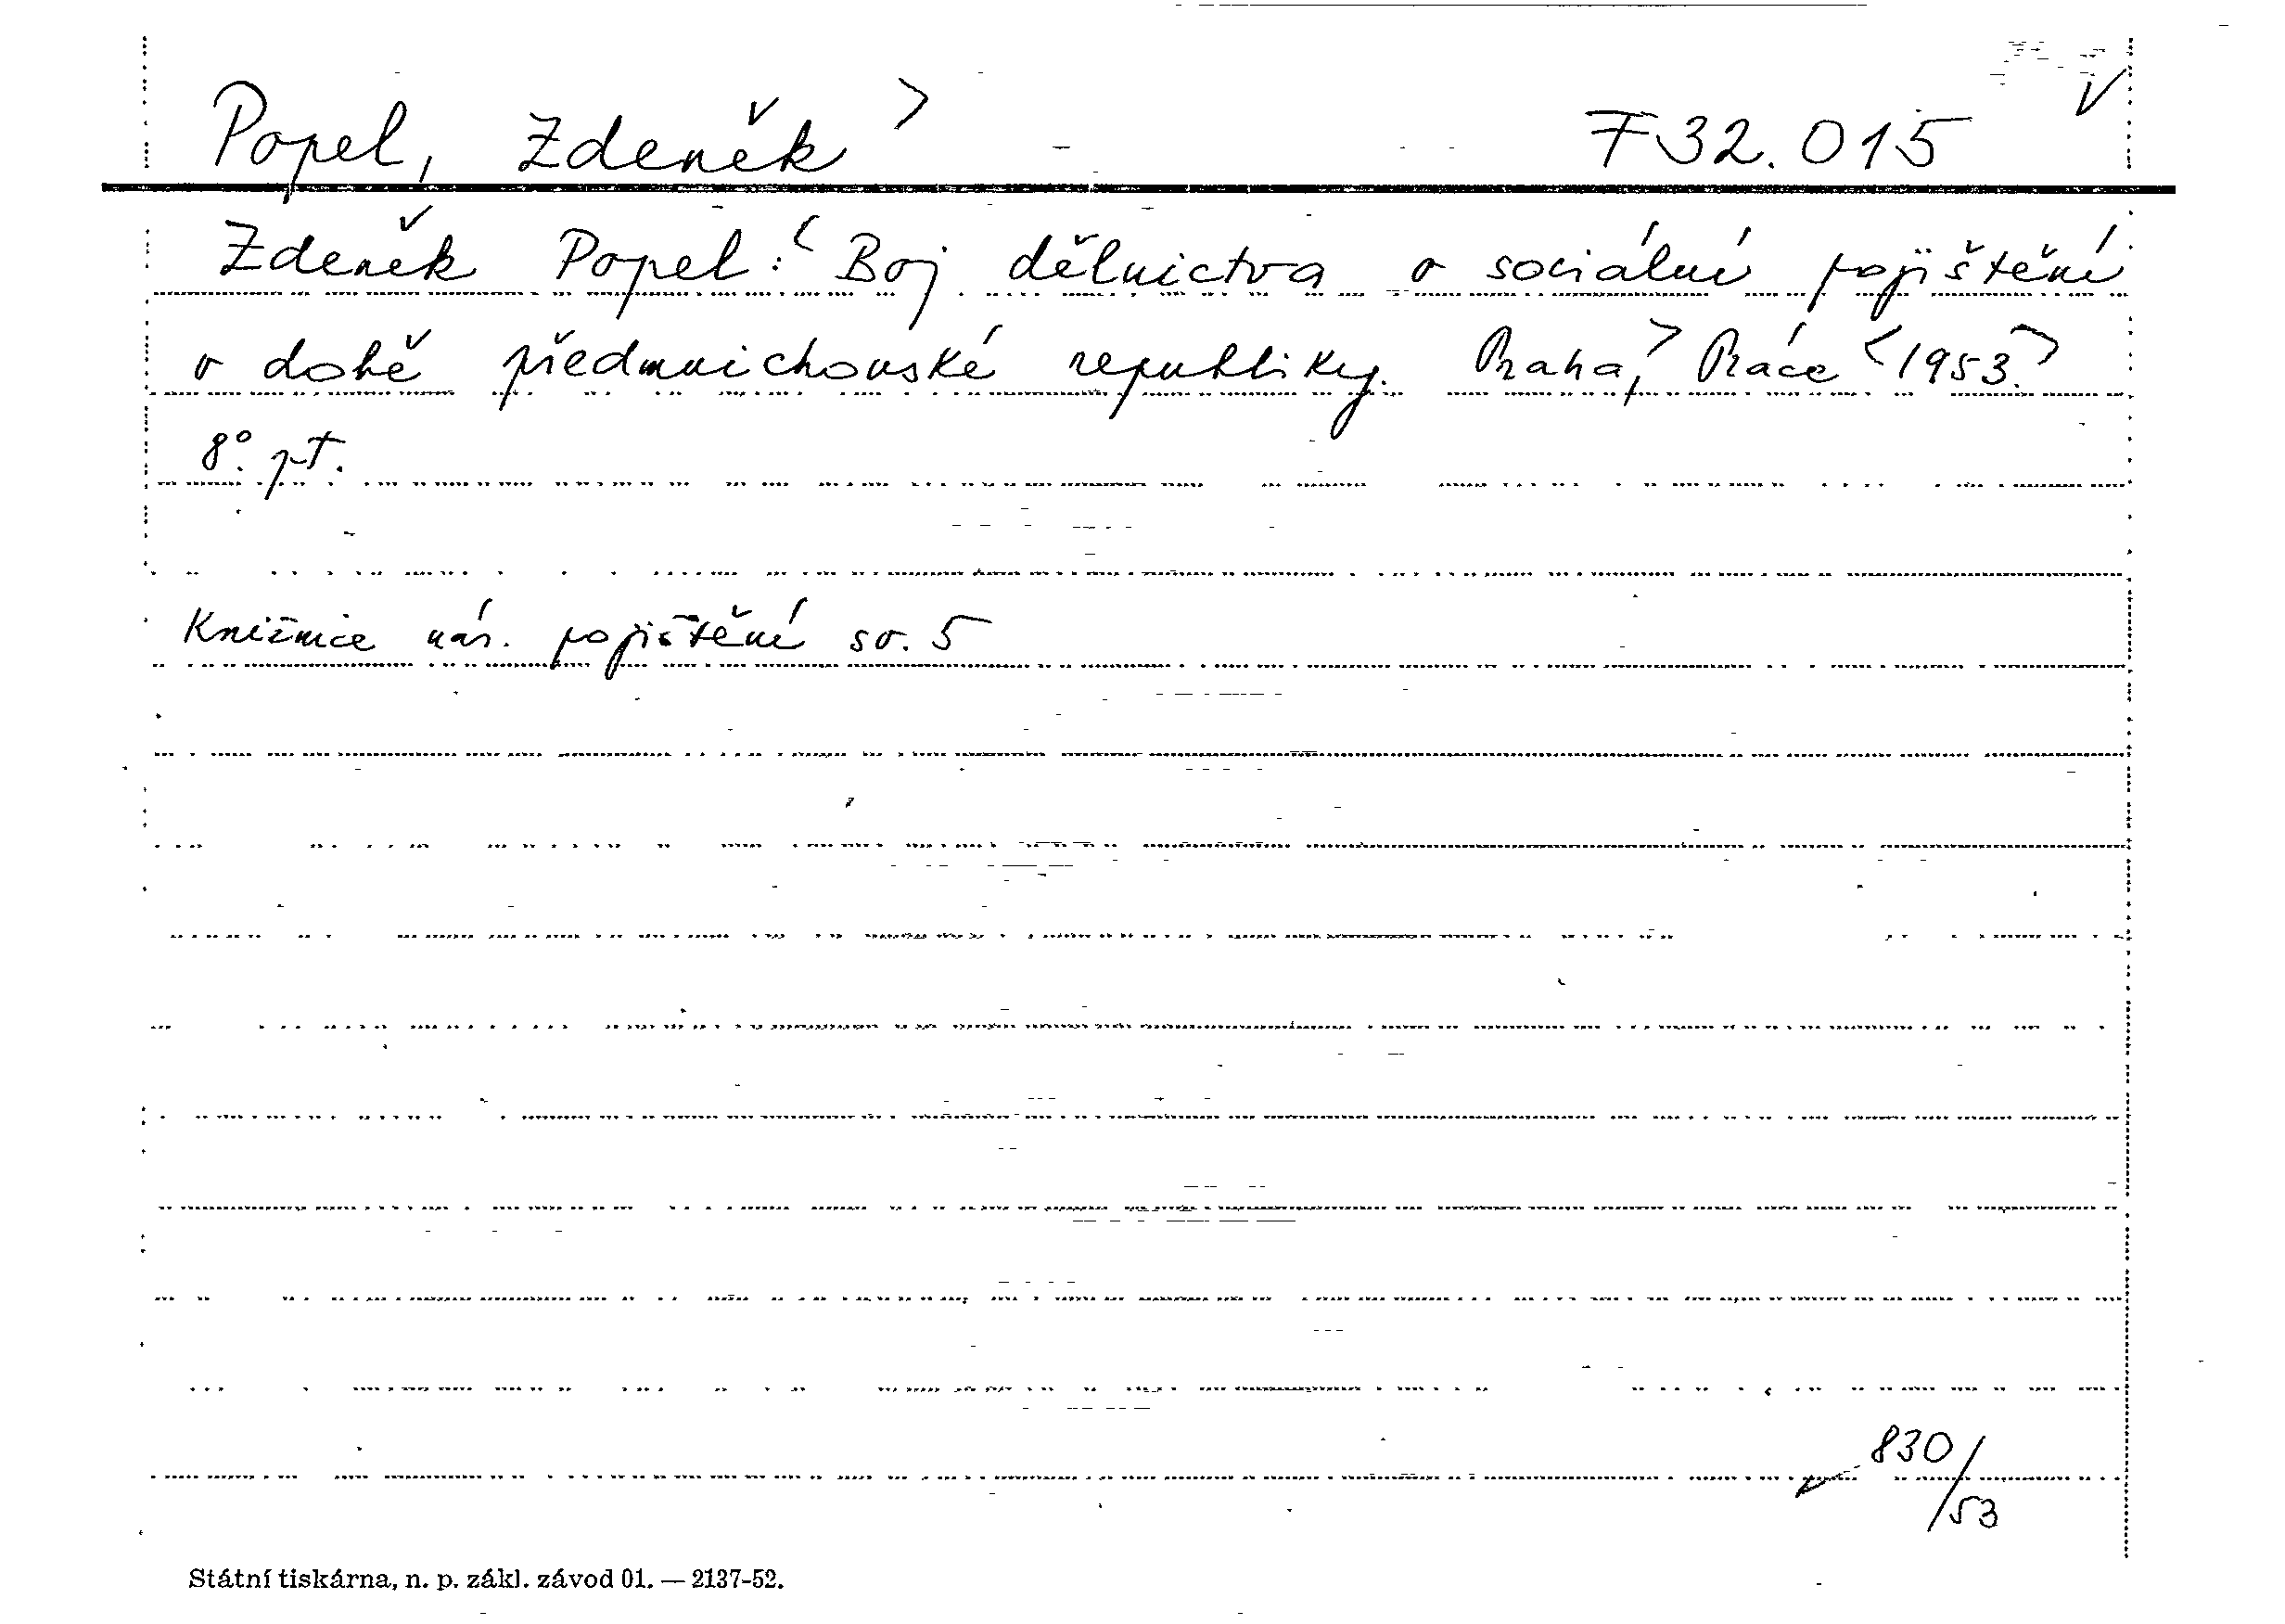 Popel, Zdeněk > F 32.015 V
Zdeněk Popel: < Boj dělnictva o sociální pojištění
v době předmnichovské republiky. Praha, > Práce < 1953. >
8°. pt.
Knižnice nár. pojištění sv. 5
830/53
Státní tiskárna, n. p. zákl. závod 01. — 2137-52.